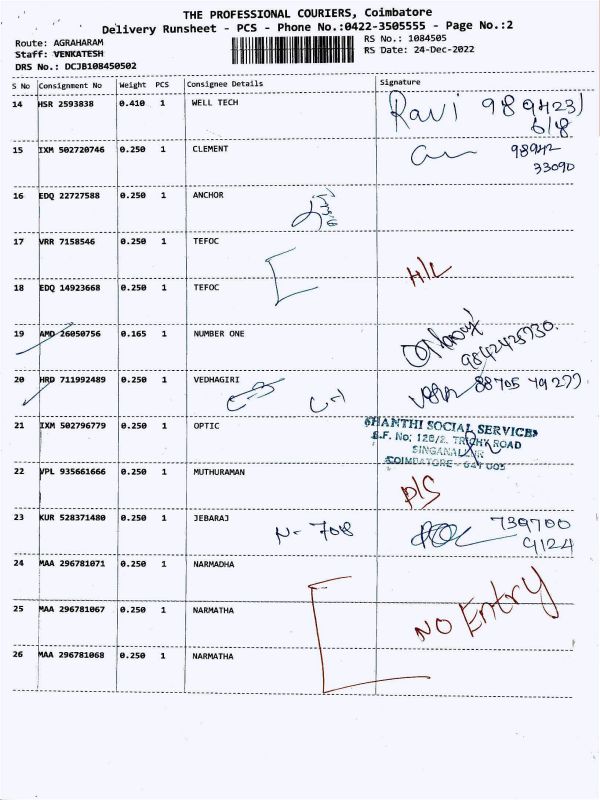 THE PROFESSIONAL COURIERS, Coimbatore
Delivery Runsheet - PCS - Phone No.:0422-3505555 - Page No.:2
Route: AGRAHARAM RS No.: 1084505
Staff: VENKATESH RS Date: 24-Dec-2022
DRS No.: DCJB108450502
S No Consignment No Weight PCS Consignee Details Signature
14 HSR 2593838 0.410 1 WELL TECH Ravi
15 IXM 502720746 0.250 1 CLEMENT 98942
33090
16 EDQ 22727588 0.250 1 ANCHOR
17 VRR 7158546 0.250 1 TEFOC
H/L
18 EDQ 14923668 0.250 1 TEFOC
19 AMD 26050756 0.165 1 NUMBER ONE 9842425730.
20 HRD 711992489 0.250 1 VEDHAGIRI 88705 49277
21 IXM 502796779 0.250 1 OPTIC SHANTHI SOCIAL SERVICES
S.F. No; 128/2, TRICHY ROAD
SINGANALLUR
COIMBATORE - 641 005
22 VPL 935661666 0.250 1 MUTHURAMAN D/S
23 KUR 528371480 0.250 1 JEBARAJ N- 708 739700
9124
24 MAA 296781071 0.250 1 NARMADHA
25 MAA 296781067 0.250 1 NARMATHA NO Entry
26 MAA 296781068 0.250 1 NARMATHA